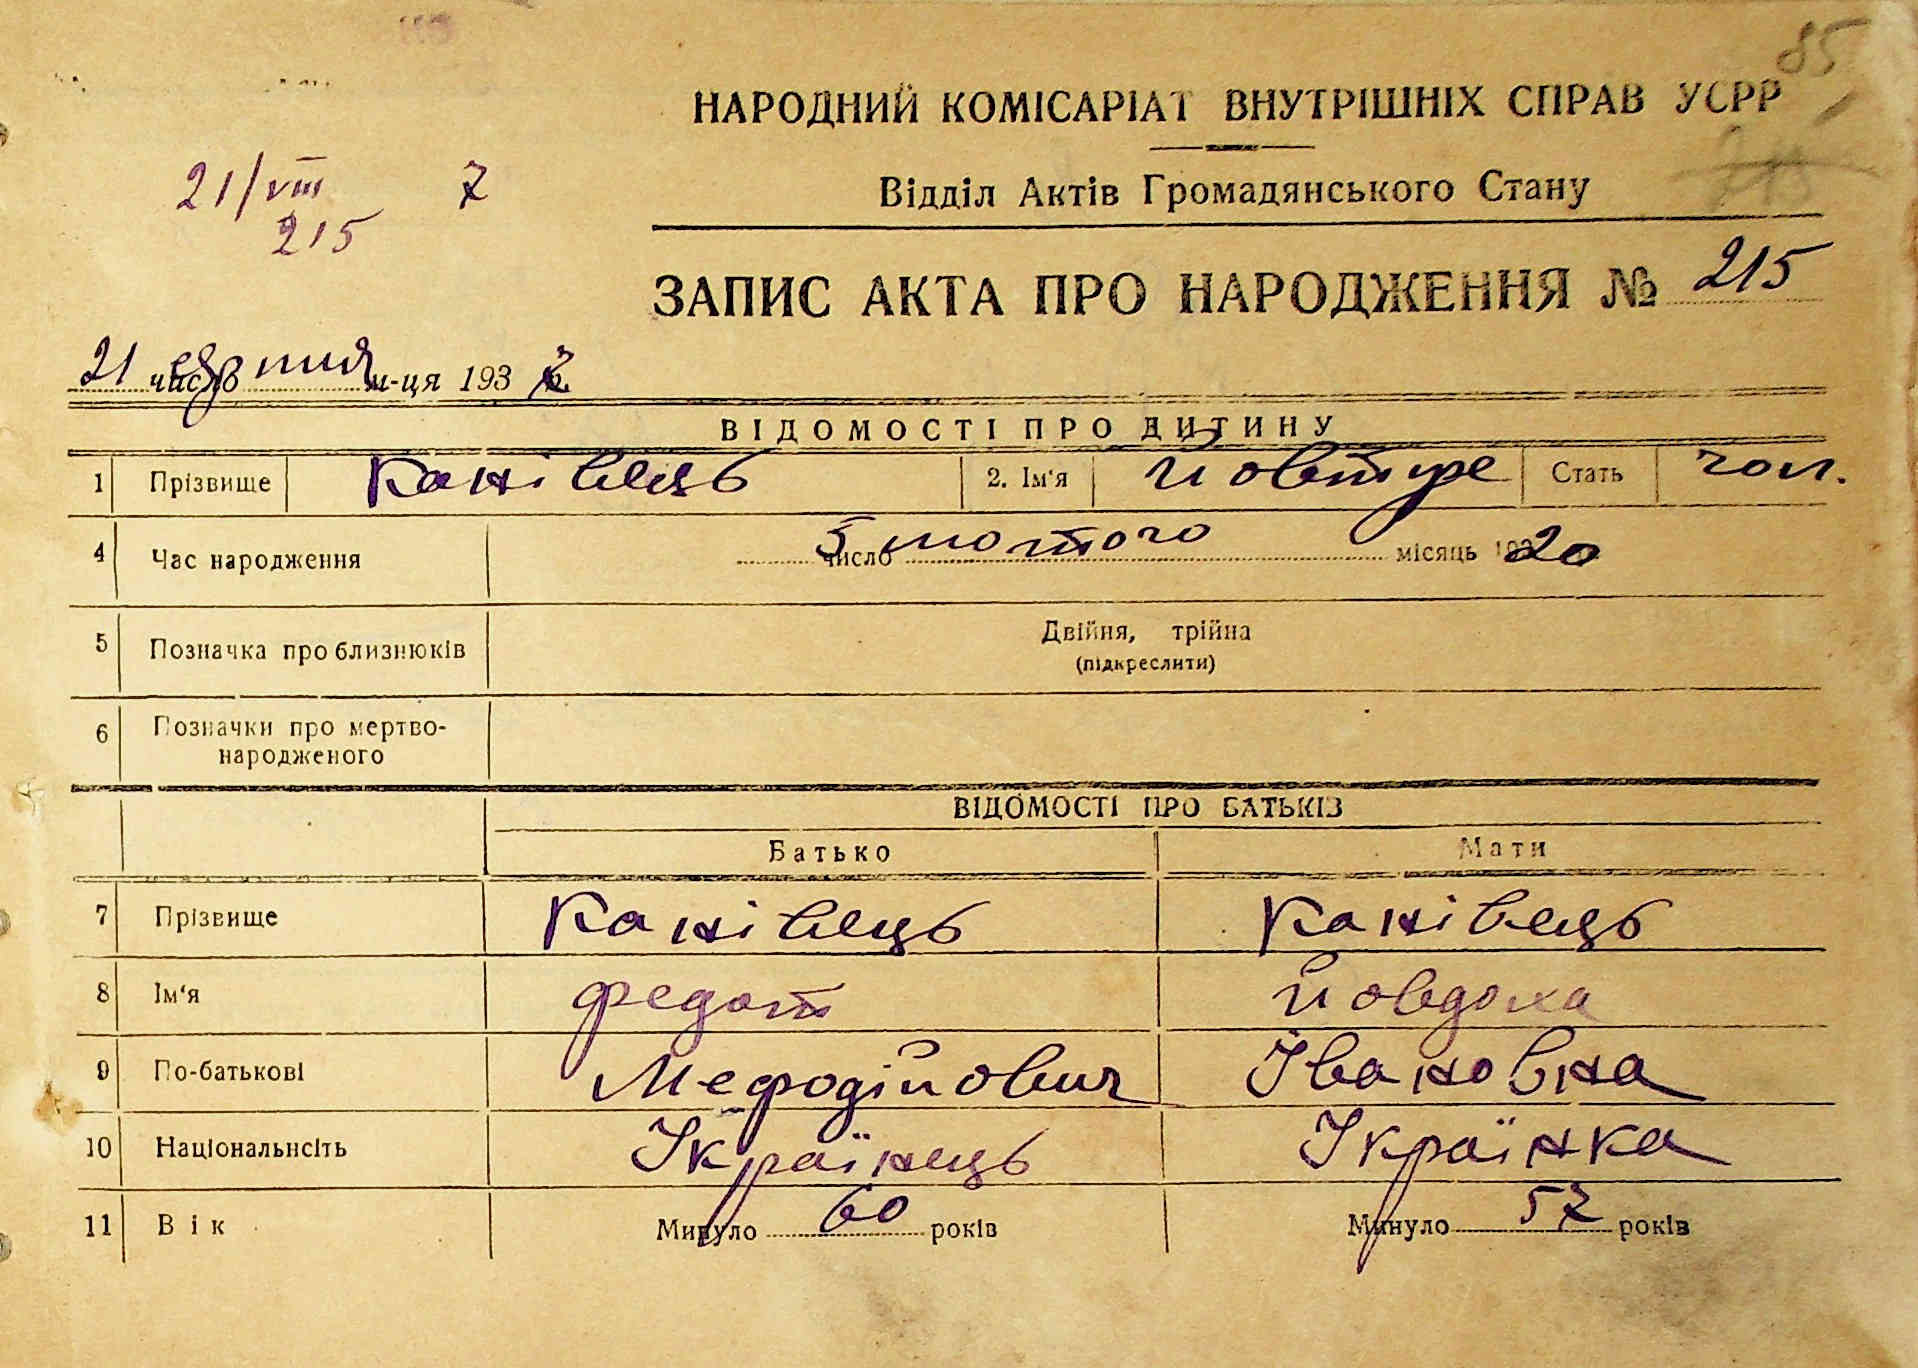 85
НАРОДНИЙ КОМІСАРІАТ ВНУТРІШНІХ СПРАВ УСРР
21/VIII 7
215
215
Відділ Актів Громадянського Стану
ЗАПИС АКТА ПРО НАРОДЖЕННЯ № 215
21 число серпня м-ця 1937 р.
ВІДОМОСТІ ПРО ДИТИНУ
1 Прізвище Канівець 2. Ім'я Йовтухе Стать чол.
4 Час народження 5 число лютого місяць 1920
5 Позначка про близнюків Двійня, трійна
(підкреслити)
6 Позначки про мертво-
народженого
ВІДОМОСТІ ПРО БАТЬКІВ
Батько Мати
7 Прізвище Канівець Канівець
8 Ім'я Федот Йовдоха
9 По-батькові Мефодійович Івановна
10 Національнсіть Українець Українка
11 Вік Минуло 60 років Минуло 57 років